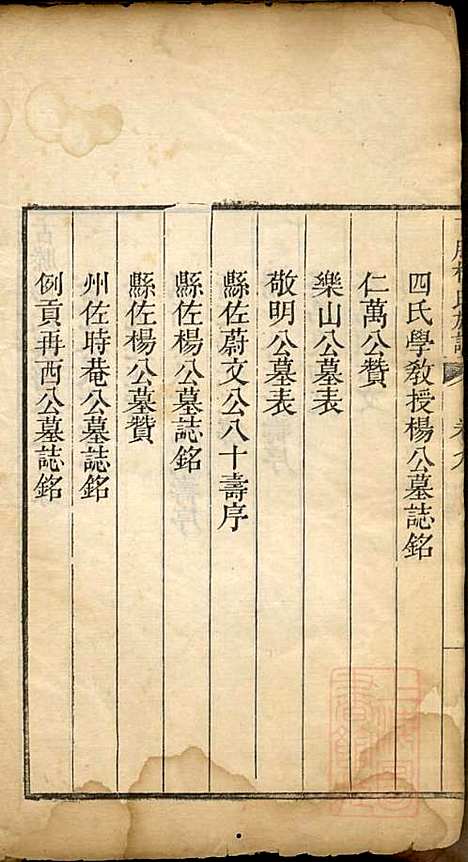 四氏學敎授楊公墓誌銘
仁萬公贊
樂山公墓表
敬明公墓表
縣佐蔚文公八十壽序
縣佐楊公墓誌銘
縣佐楊公墓贊
州佐時菴公墓誌銘
例貢再西公墓誌銘